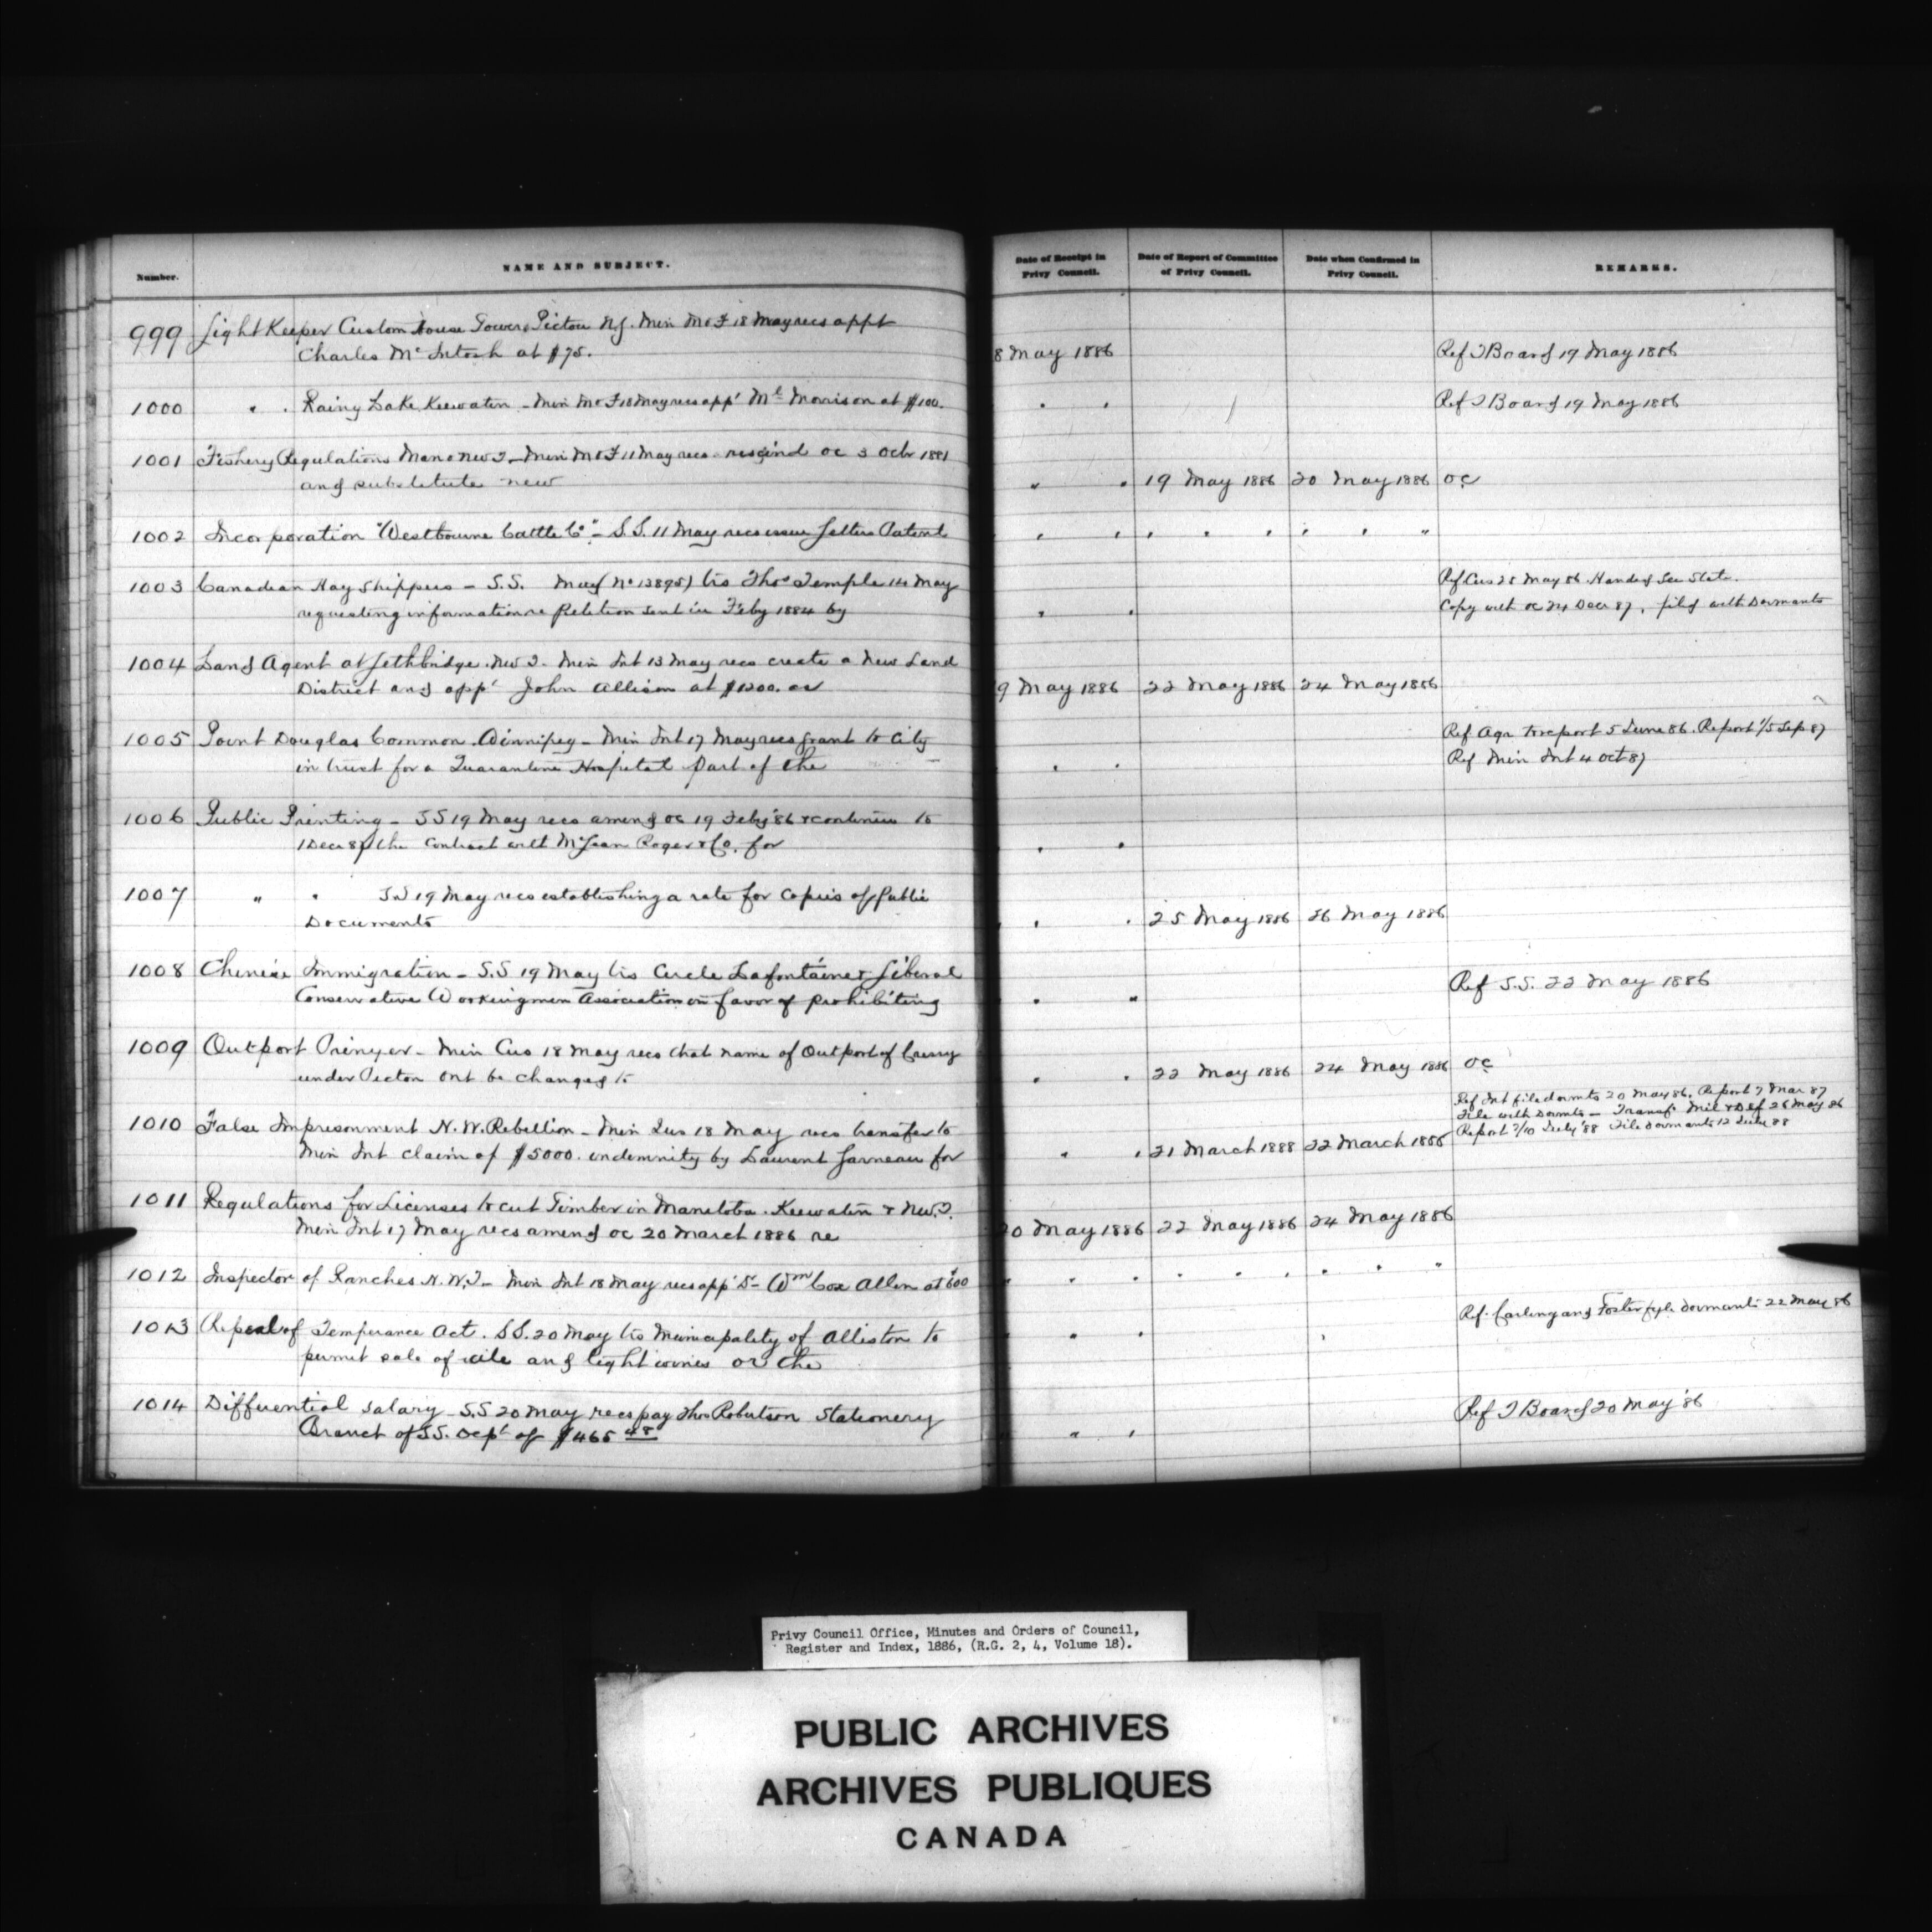 Number.
NAME AND SUBJECT.
Date of Receipt in Privy Council.
Date of Report of Committee of Privy Council.
Date when Confirmed in Privy Council.
REMARKS.
999 Light Keeper Custom House Tower Pictou NS. Min M&F 18 May recs appt
Charles McIntosh at $75.
8 May 1886
Ref T Board 19 May 1886
1000 " " Rainy Lake Keewatin - Min M&F 18 May recs appt Morrison at $100.
" "
Ref T Board 19 May 1886
1001 Fishery Regulations Man & NWT - Min M&F 11 May recs rescind oc 3 Octr 1881
and substitute new
" " 19 May 1886 20 May 1886 OC
1002 Incorporation "Westbourne Cattle Co" - S.S. 11 May recs issue Letters Patent
" " " " " " " "
1003 Canadian Hay Shippers - S.S. May (No 13895) trs Thos Temple 14 May
requesting information re Petition sent in Feby 1884 by
" "
Ref Cus 25 May 86. Handed Sec State.
Copy with oc 24 Decr 87, filed with Dormants
1004 Land Agent at Lethbridge. NWT - Min Int 13 May recs create a New Land
District and appt John Allison at $1200. as
9 May 1886 22 May 1886 24 May 1886
1005 Point Douglas Common. Winnipeg - Min Int 17 May recs grant to City
in trust for a Quarantine Hospital part of the
" "
Ref Agr to report 5 June 86. Report 1/5 Sep 87
Ref Min Int 4 Oct 87
1006 Public Printing - SS 19 May recs amend oc 19 Feby '86 & continue to
1 Decr 87 the contract with McLean Roger & Co. for
" "
1007 " " SS 19 May recs establishing a rate for copies of Public
Documents
" " 25 May 1886 26 May 1886
1008 Chinese Immigration - S.S 19 May trs Cercle Lafontaine & Liberal
Conservative Workingmen Association in favor of prohibiting
" "
Ref S.S. 22 May 1886
1009 Outport Prinyer - Min Cus 18 May recs that name of Outport of
under Picton Ont be changed to
" " 22 May 1886 24 May 1886 OC
1010 False Imprisonment N.W. Rebellion - Min Jus 18 May recs transfer to
Min Int claim of $5000. indemnity by Laurent Garneau for
" " 21 March 1888 22 March 1888
Ref Int file dormts 20 May 86. Report 7 Mar 87
File with Dormts - Transf. Mil & Def 26 May 86
Report 7/10 July '88 File dormants 12 July 88
1011 Regulations for Licenses to cut Timber in Manitoba. Keewatin & NW.T.
Min Int 17 May recs amend oc 20 March 1886 re
20 May 1886 22 May 1886 24 May 1886
1012 Inspector of Ranches N.W.T - Min Int 18 May recs app Dr Wm Cox Allen at $600
" " " " " " " " "
1013 Repeal of Temperance Act. S.S. 20 May trs Municipality of Alliston to
permit sale of ale and light wines or the
" "
Ref. Carling and Foster fyle dormants 22 May 86
1014 Differential salary S.S 20 May recs pay Thos Robertson Stationery
Branch of SS. Dept of $465 48
" "
Ref T Board 20 May '86
Privy Council Office, Minutes and Orders of Council,
Register and Index, 1886, (R.G. 2, 4, Volume 18).
PUBLIC ARCHIVES
ARCHIVES PUBLIQUES
CANADA